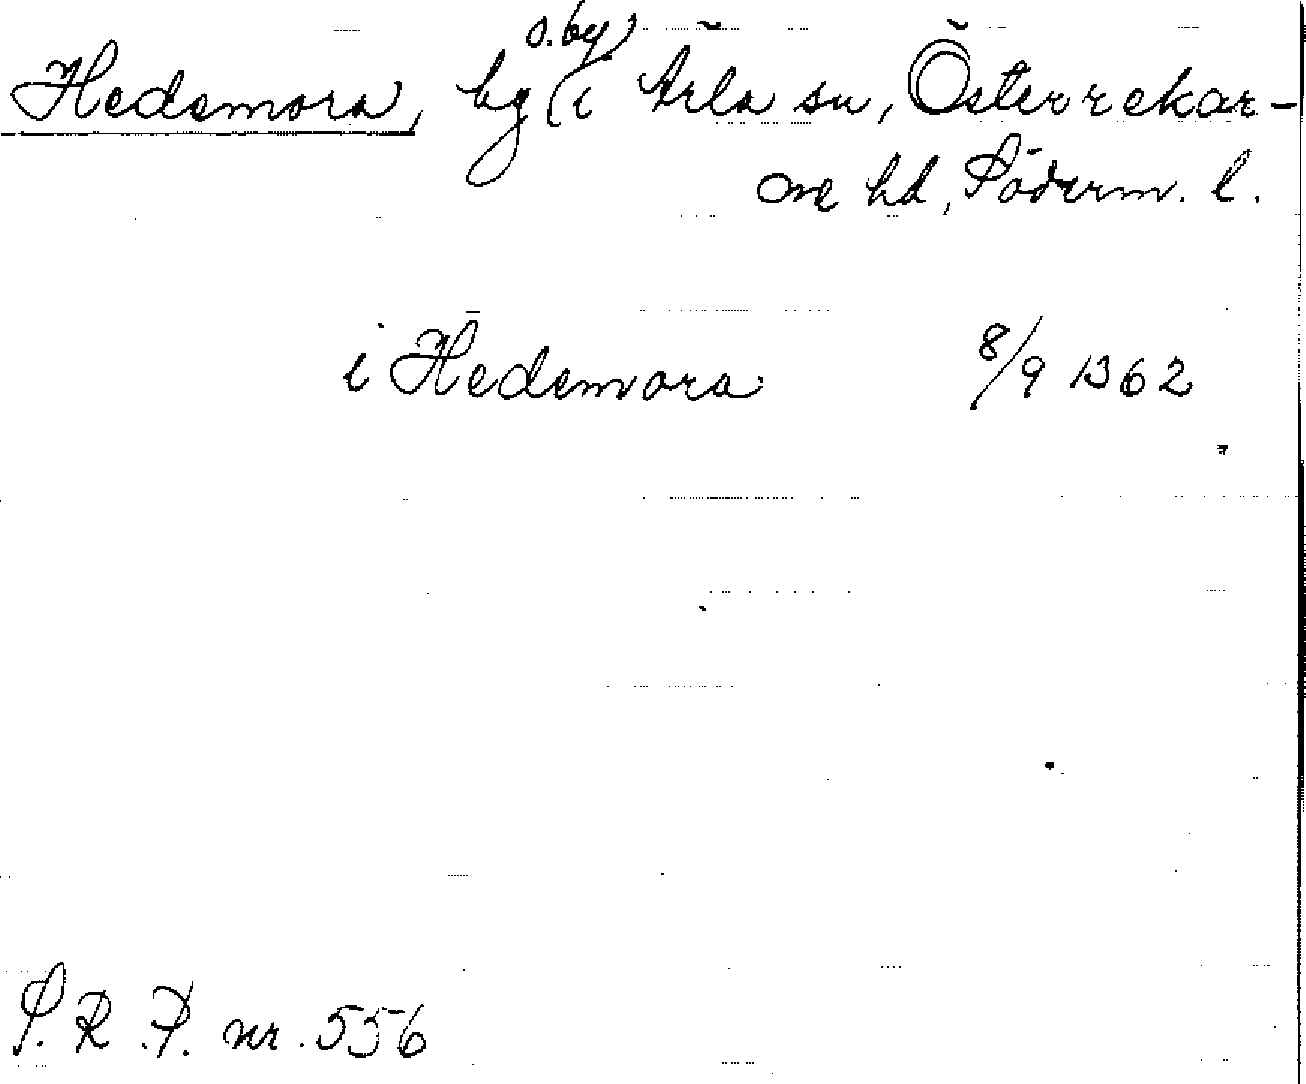 s. by)
Hedemora, by (i Ärla sn, Österrekar-
ne hd, Söderm. l.
i Hedemora 8/9 1362
S. R. P. nr. 556